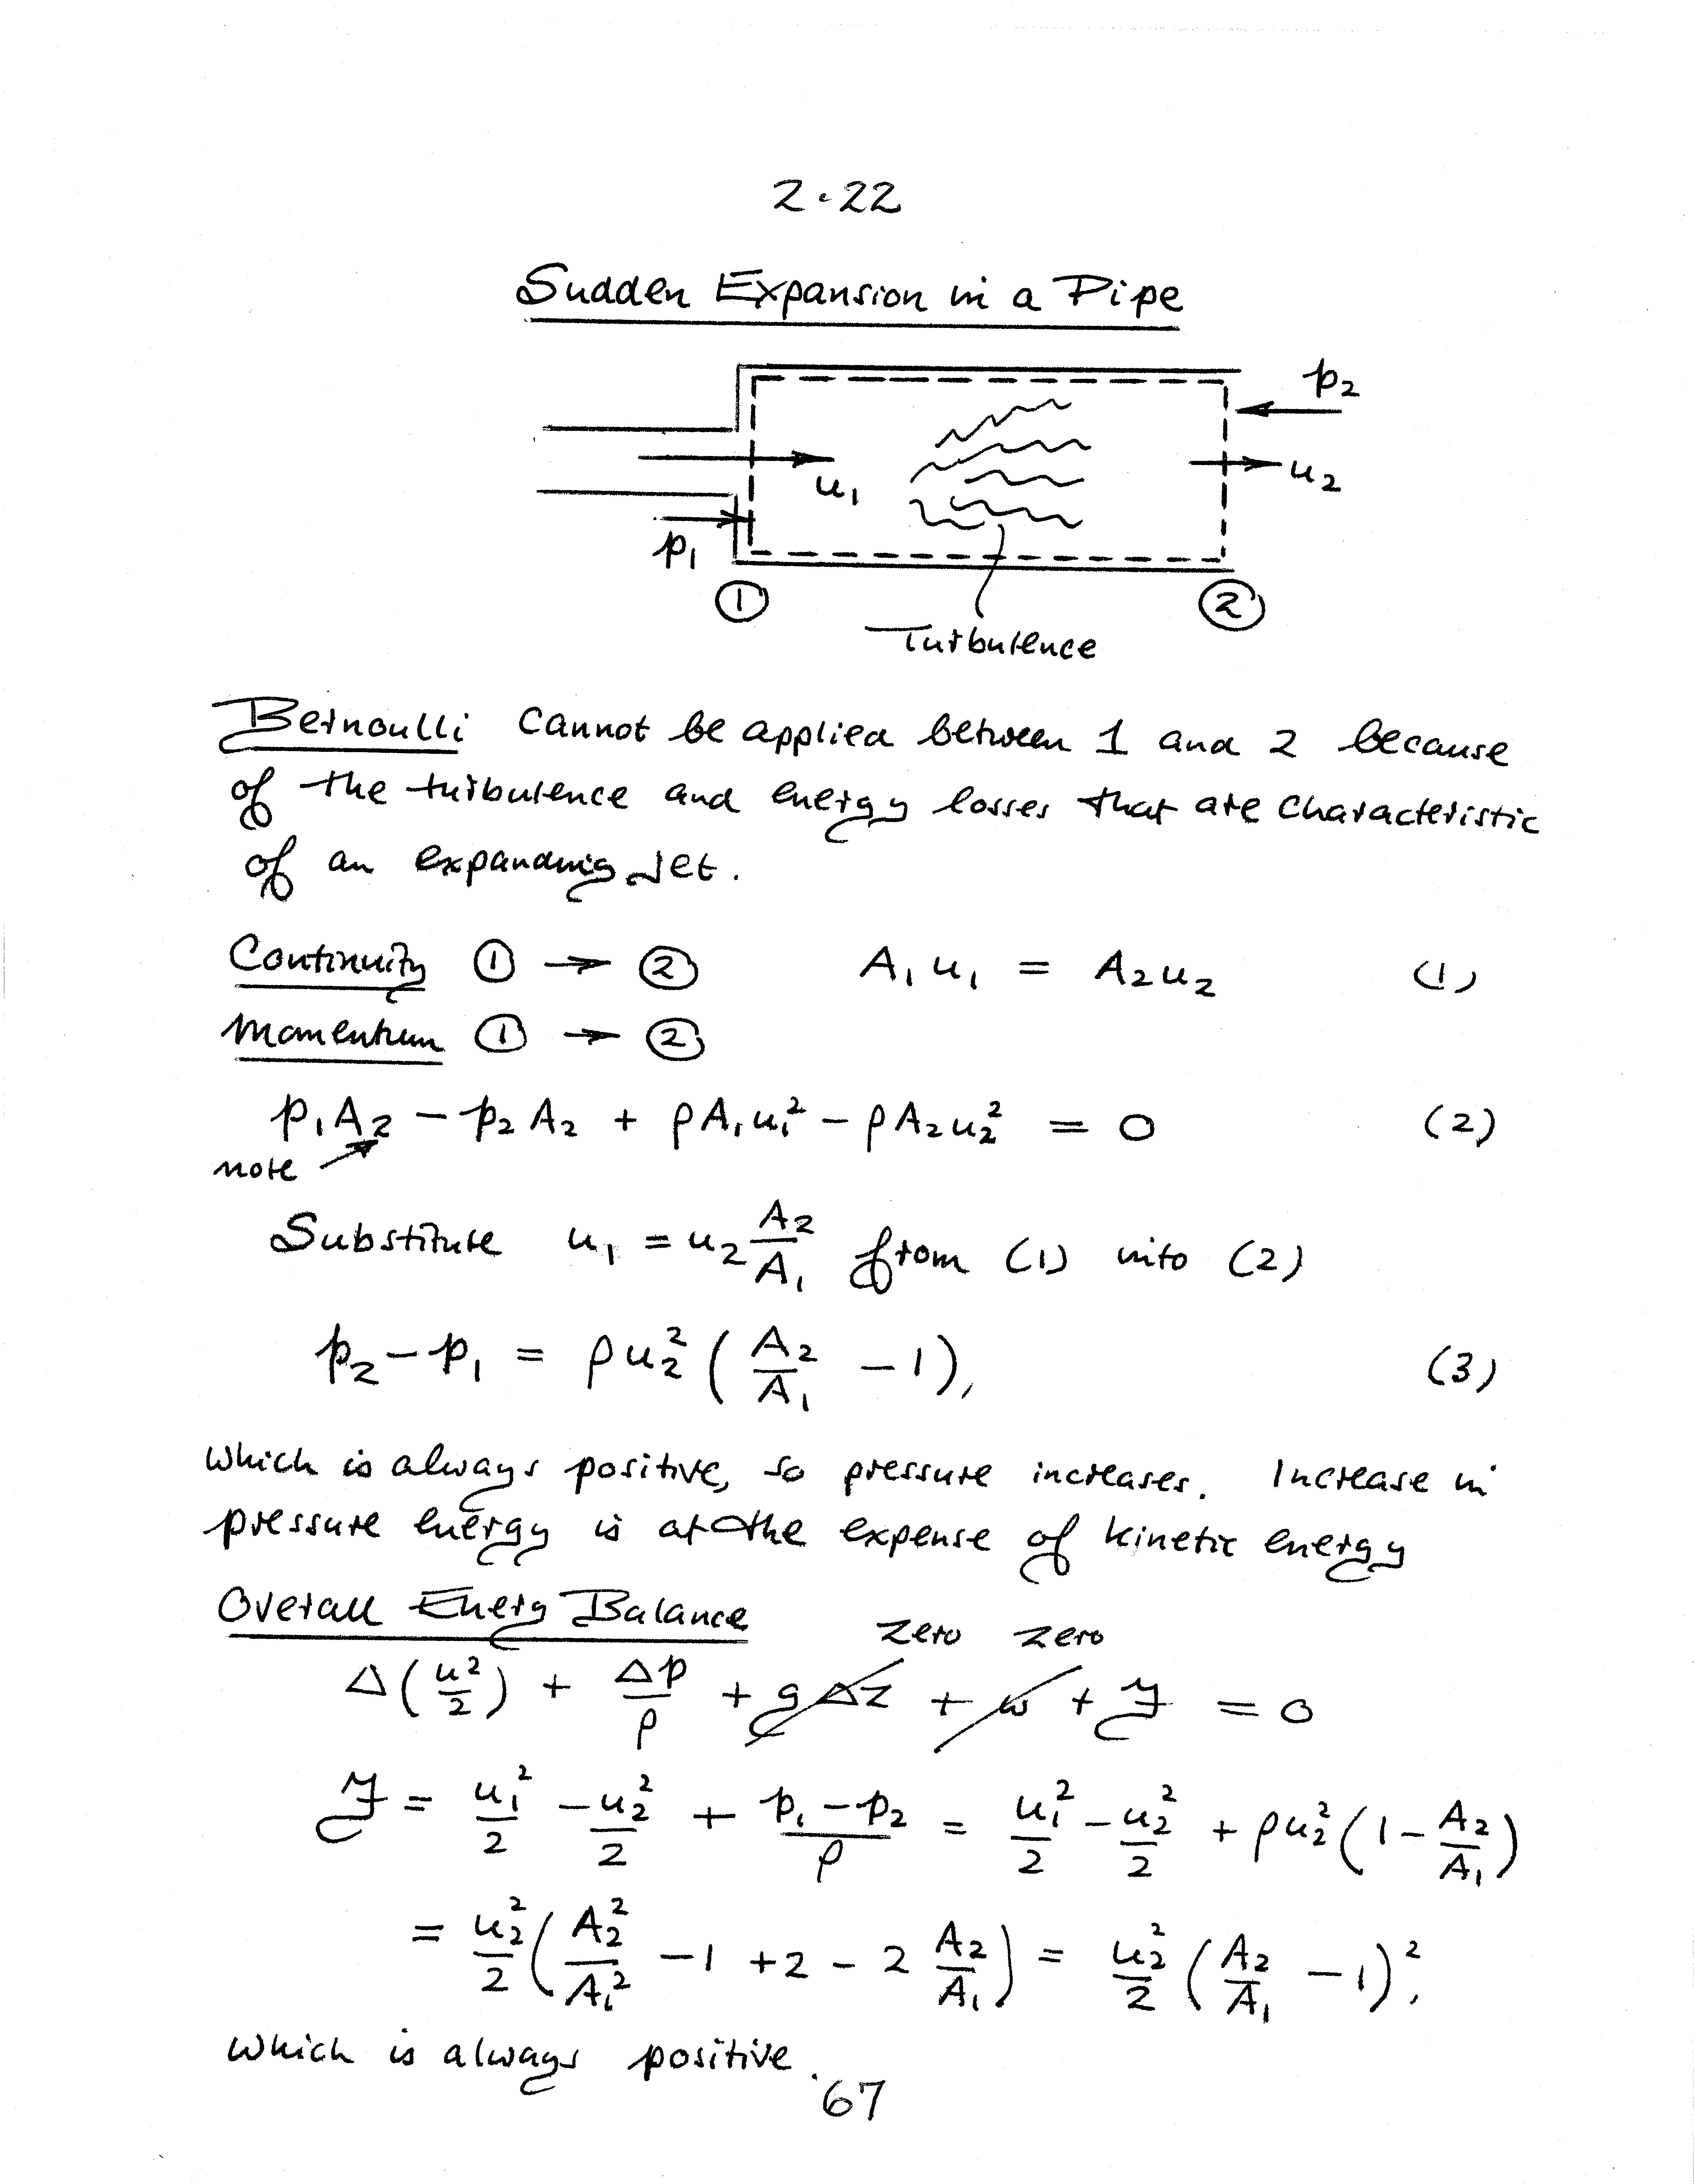 2.22
Sudden Expansion in a Pipe
p₂
u₁
u₂
p₁
① ②
Turbulence
Bernoulli cannot be applied between 1 and 2 because
of the turbulence and energy losses that are characteristic
of an expanding jet.
Continuity ① → ② A₁u₁ = A₂u₂ (1)
Momentum ① → ②
p₁A₂ − p₂A₂ + ρA₁u₁² − ρA₂u₂² = 0 (2)
note
Substitute u₁ = u₂ A₂/A₁ from (1) into (2)
p₂ − p₁ = ρu₂² (A₂/A₁ − 1), (3)
which is always positive, so pressure increases. Increase in
pressure energy is at the expense of kinetic energy
Overall Energy Balance
zero zero
Δ(u²/2) + Δp/ρ + gΔz + w + ℱ = 0
ℱ = u₁²/2 − u₂²/2 + (p₁ − p₂)/ρ = u₁²/2 − u₂²/2 + ρu₂²(1 − A₂/A₁)
= u₂²/2 (A₂²/A₁² − 1 + 2 − 2 A₂/A₁) = u₂²/2 (A₂/A₁ − 1)²,
which is always positive.
67